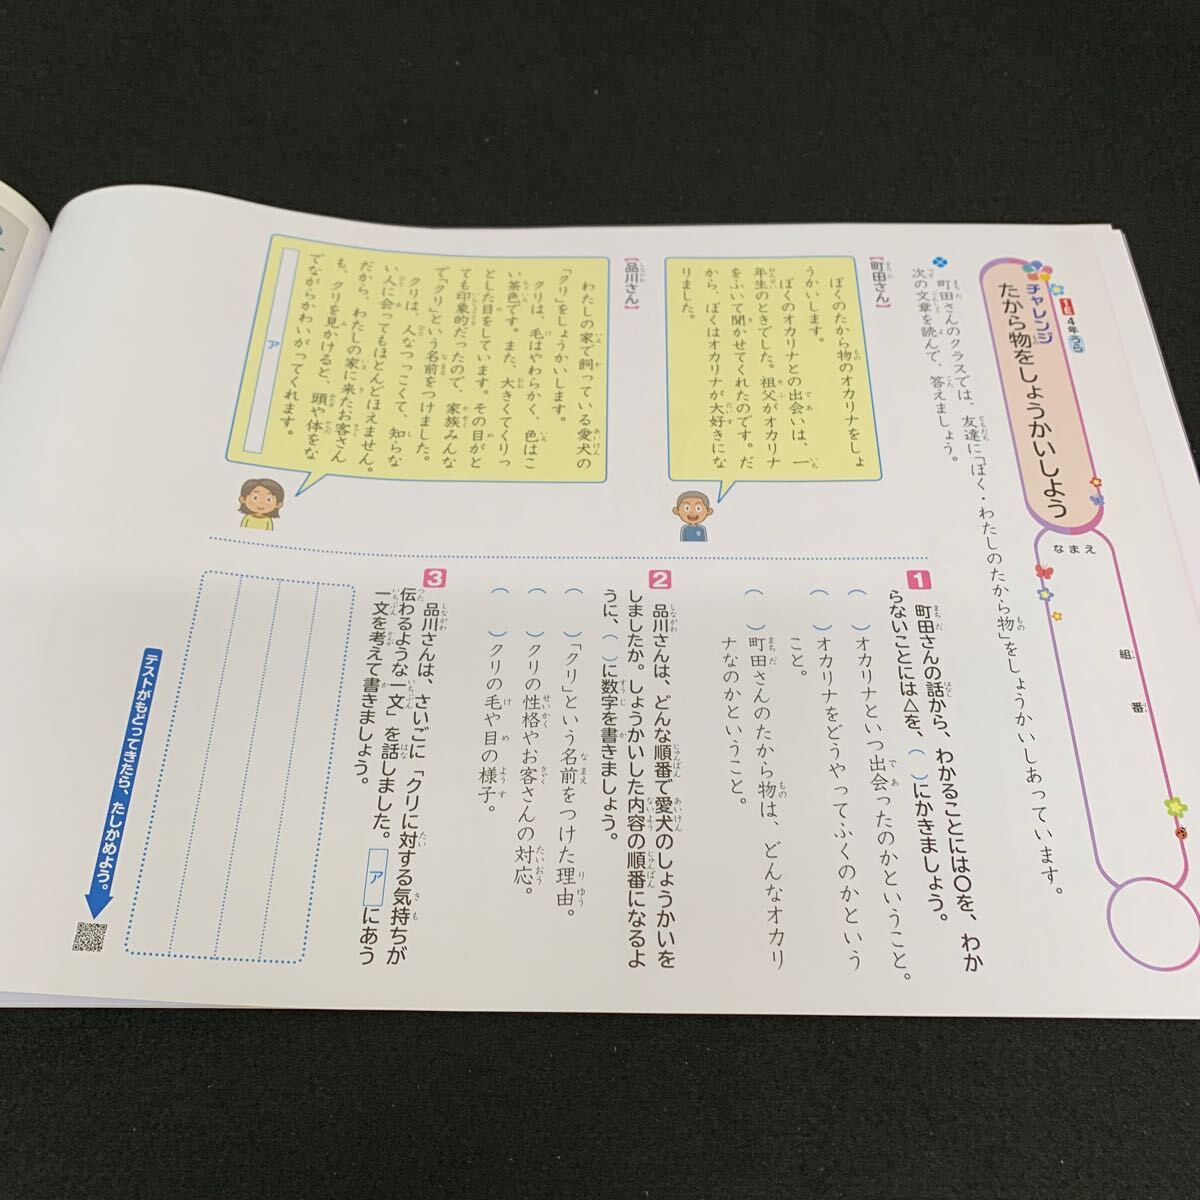 チャレンジ
1-E 4年 うら
たから物をしょうかいしよう
なまえ
組
番
町田さんのクラスでは、友達に「ぼく・わたしのたから物」をしょうかいしあっています。
次の文章を読んで、答えましょう。
【町田さん】
ぼくのたから物のオカリナをしょ
うかいします。
ぼくのオカリナとの出会いは、一
年生のときでした。祖父がオカリナ
をふいて聞かせてくれたのです。だ
から、ぼくはオカリナが大好きにな
りました。
【品川さん】
わたしの家で飼っている愛犬の
「クリ」をしょうかいします。
クリは、毛はやわらかく、色はこ
い茶色です。また、大きくてくりっ
とした目をしています。その目がと
ても印象的だったので、家族みんな
で「クリ」という名前をつけました。
クリは、人なつっこくて、知らな
い人に会ってもほとんどほえません。
だから、わたしの家に来たお客さん
も、クリを見かけると、頭や体をな
でながらかわいがってくれます。
ア
1 町田さんの話から、わかることには○を、わか
らないことには△を、( )にかきましょう。
( )オカリナといつ出会ったのかということ。
( )オカリナをどうやってふくのかという
こと。
( )町田さんのたから物は、どんなオカリ
ナなのかということ。
2 品川さんは、どんな順番で愛犬のしょうかいを
しましたか。しょうかいした内容の順番になるよ
うに、( )に数字を書きましょう。
( )「クリ」という名前をつけた理由。
( )クリの性格やお客さんの対応。
( )クリの毛や目の様子。
3 品川さんは、さいごに「クリに対する気持ちが
伝わるような一文」を話しました。 ア にあう
一文を考えて書きましょう。
テストがもどってきたら、たしかめよう。